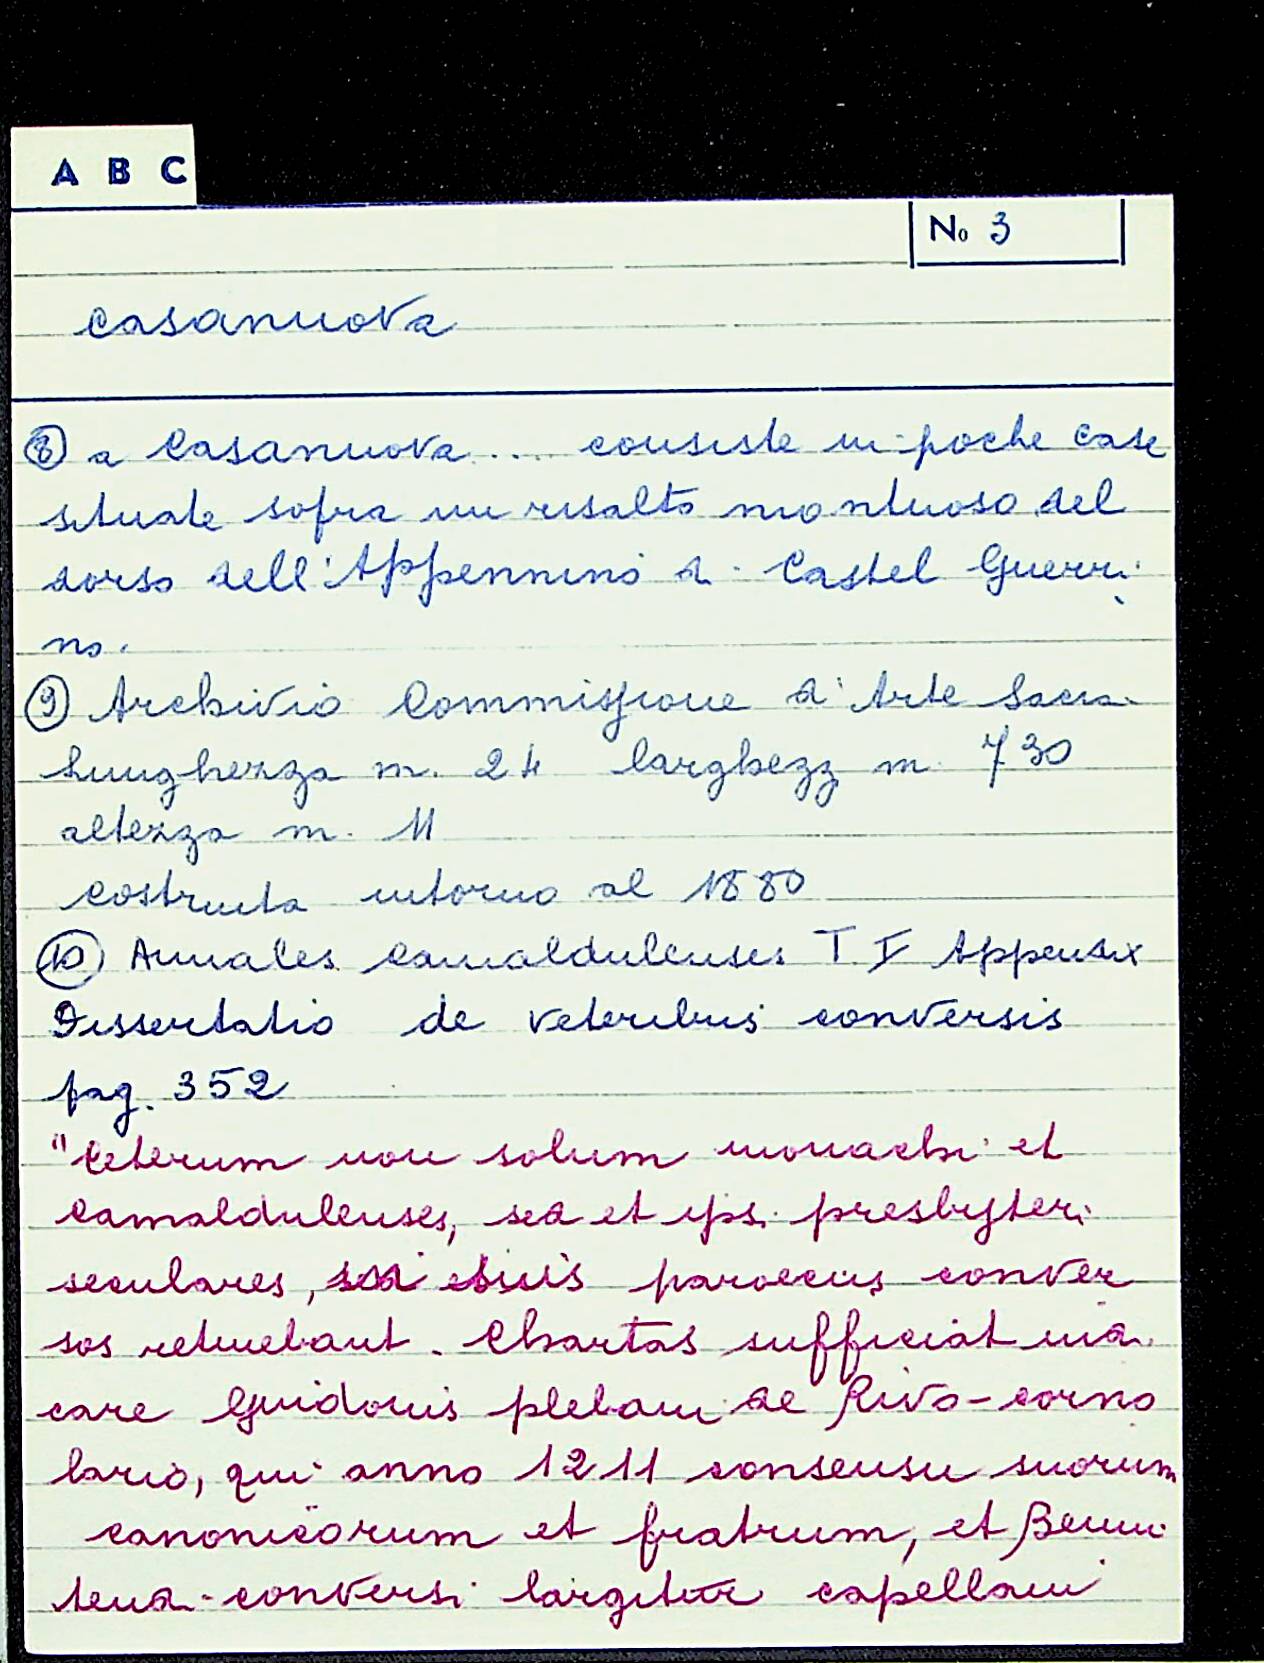 A B C
No 3
Casanuova
⑧ a Casanuova .... consiste in poche case
situate sopra un risalto montuoso del
dorso dell'Appennino di Castel Guerri
no.
⑨ Archivio Commissione d'Arte Sacra
lunghezza m. 24 larghezz m. 7 30
altezza m. 11
costruita intorno al 1880
⑩ Annales Camaldulenses T. I Appendix
Dissertatio de veteribus conversis
pag. 352
"Ceterum non solum monachi et
Camaldulenses, sed et ipsi presbyteri
seculares, paroecus conver
sos retinebant. Chartas sufficiat indi
care Guidonis plebani de Rivo-corno
lario, qui anno 1211 consensu suorum
canonicorum et fratrum, et Benin
tendi conversi largitur capellani